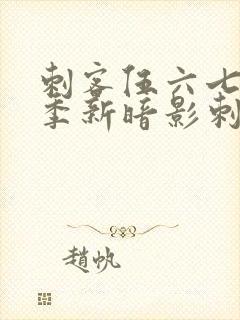 刺客伍六七
季新暗影刺
趙帆